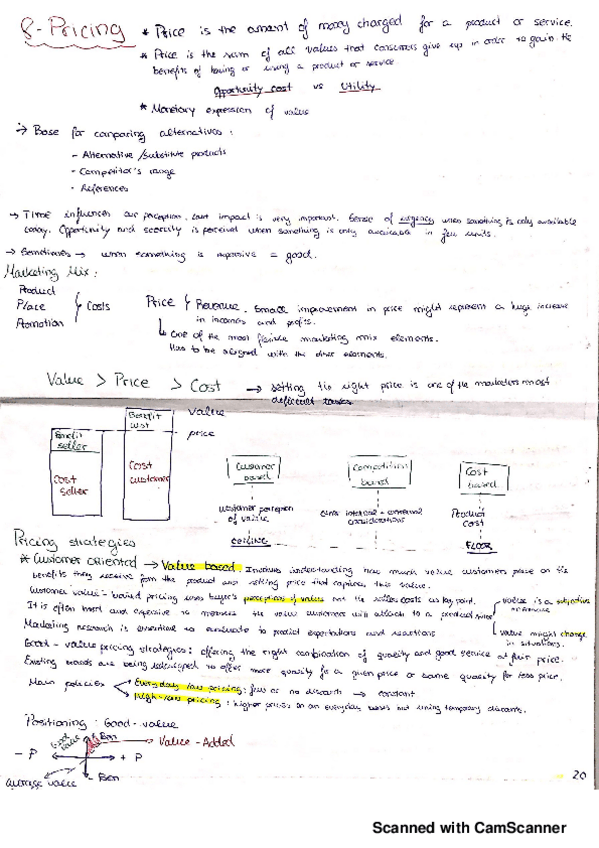 8-Pricing
* Price is the amount of money charged for a product or service.
* Price is the sum of all values that consumers give up in order to gain the
benefits of having or using a product or service
Opportunity cost vs Utility
* Monetary expression of value
→ Base for comparing alternatives:
- Alternative/Substitute products
- Competitor's range
- References
→ Time influences our perception. impact is very important. Sense of urgency when something is only available
today. Opportunity and security is perceived when something is only available in few units.
→ Sometimes → when something is expensive = good.
Marketing Mix:
Product
Place
Promotion
Costs
Price Revenue. Small improvement in price might represent a huge increase
in incomes and profits.
One of the most flexible marketing mix elements.
Has to be aligned with the other elements.
Value > Price > Cost → setting the right price is one of the marketers most
difficult tasks
Benefit seller
Cost seller
Benefit cust
Cost customer
value
price
Customer based
customer perception of value
CEILING
Competition based
internal + external considerations
Cost based
Product cost
FLOOR
Pricing strategies
* Customer oriented → Value based. Involves understanding how much value customers place on the
benefits they receive from the product and setting price that captures this value.
Customer value-based pricing uses buyer's perceptions of value not the sellers costs as key point.
It is often hard and expensive to measure the value customers will attach to a product
value is a subjective
value might change
in situations.
Marketing research is essential to evaluate to predict expectations and reactions
Good-value pricing strategies: offering the right combination of quality and good service at fair price.
Existing brands are being redesigned to offer more quality for a given price or same quality for less price.
Main policies
Everyday low pricing: few or no discounts → constant
High-low pricing: higher prices on an everyday bases but using temporary discounts.
Positioning: Good-value
Good value
+ Ben
Value-Added
- P
+ P
- Ben
average value
20
Scanned with CamScanner